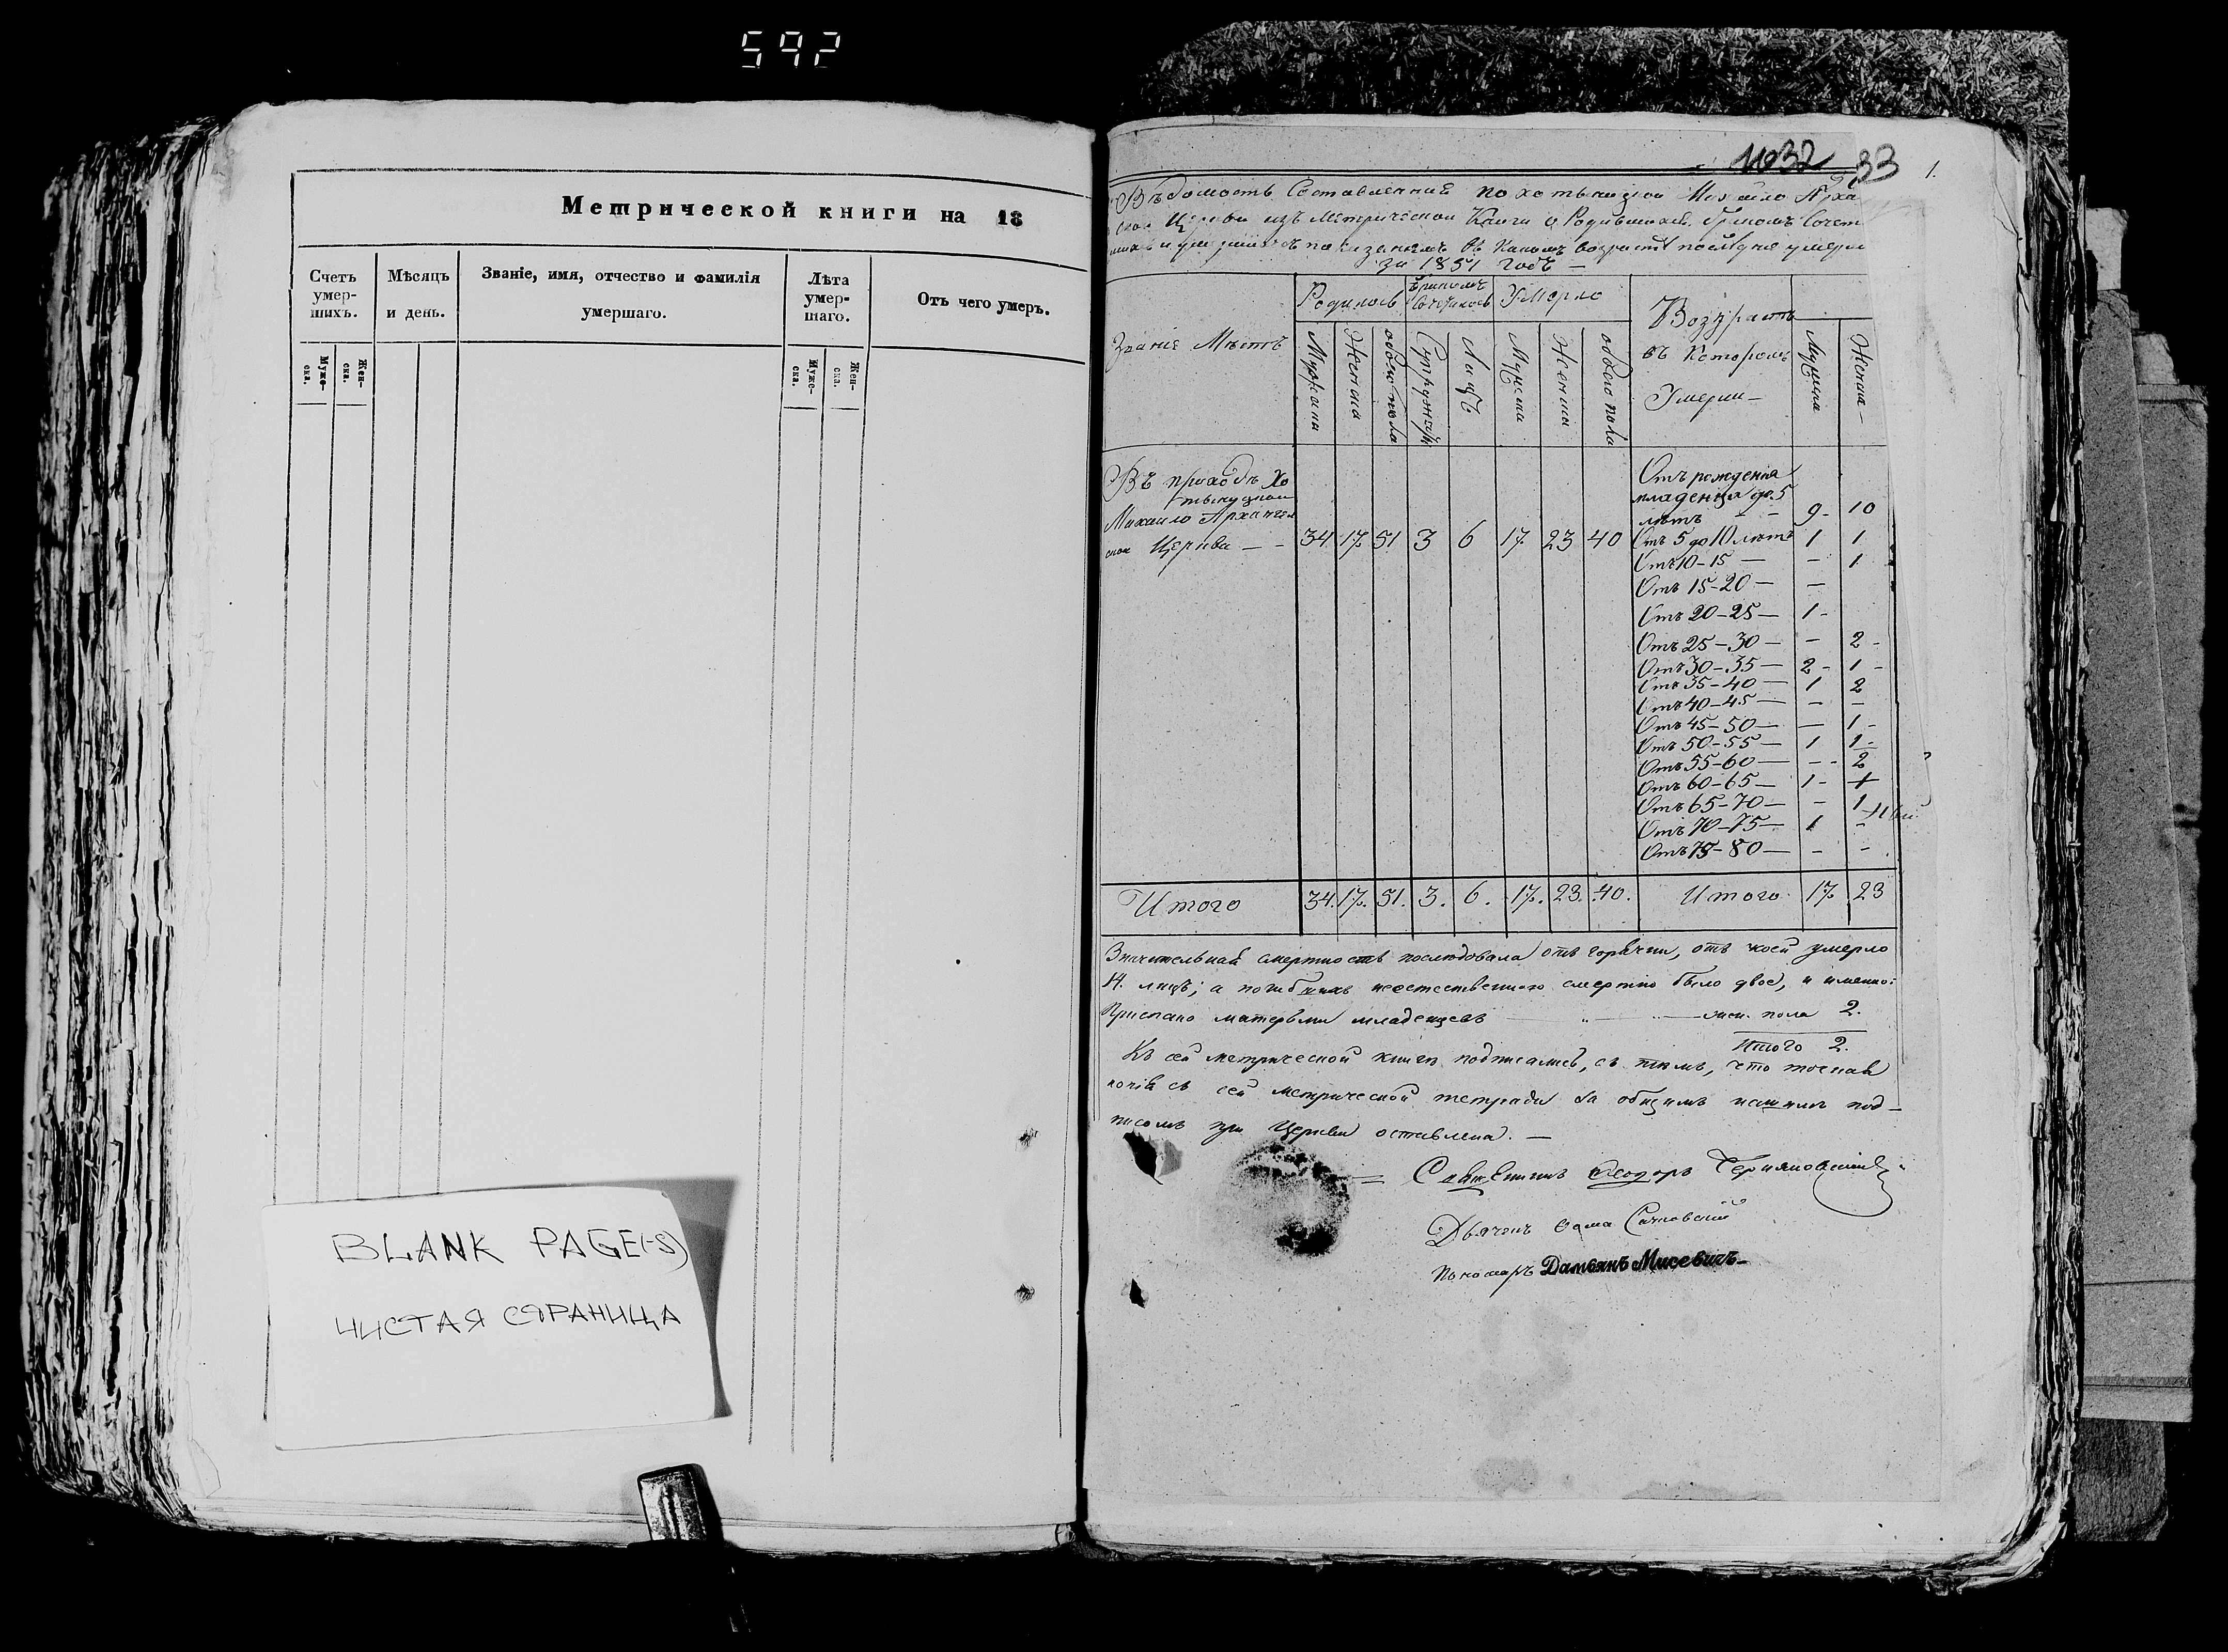 592
Метрической книги на 18
Счетъ умер-шихъ.
Мѣсяцъ и день.
Званіе, имя, отчество и фамилія умершаго.
Лѣта умер-шаго.
Отъ чего умеръ.
Муже-ска.
Жен-ска.
Муже-ска.
Жен-ска.
BLANK PAGE(-S)
ЧИСТАЯ СТРАНИЦА
1032 33 1.
Вѣдомость Составленная по Михайло Арха
ской Церкви изъ Метрической Книги о Родившихся Бракомъ Сочет
въ какомъ возрастѣ умерли
за 1851 годъ —
Званіе Мѣстъ
Родилось
Бракомъ Сочеталось
Умерло
Возрастъ въ Которомъ Умерли —
Мужеска
Женска
обоего пола
Супружествъ
Лицъ
Мужеска
Женска
обоего пола
Мужеска
Женска —
Въ приходѣ Хо
Михайло Архангел
ской Церкви — — 34 17 51 3 6 17 23 40
Отъ рожденія
младенца до 5
лѣтъ — — 9 - 10
Отъ 5 до 10 лѣтъ 1 1
Отъ 10-15 — - 1
Отъ 15-20 — -
Отъ 20-25 — 1 -
Отъ 25-30 — - 2 -
Отъ 30-35 — 2 - 1 -
Отъ 35-40 — 1 2
Отъ 40-45 — - -
Отъ 45-50 — — 1 -
Отъ 50-55 — 1 1 -
Отъ 55-60 — - - 2
Отъ 60-65 — 1 - 1
Отъ 65-70 — - 1
Отъ 70-75 — 1 -
Отъ 75-80 — - -
Итого 34. 17. 51. 3. 6. 17. 23. 40. Итого 17 23
Значительная смертность послѣдовала отъ горячки, отъ коей умерло
14. лицъ; а погибшихъ неестественною смертію было двое, и именно:
Приспано матерьми младенцевъ — „ — „ — жен. пола 2.
Итого 2.
Къ сей метрической книгѣ подписались, съ тѣмъ, что точная
копія съ сей метрической тетради за общимъ нашимъ под-
писомъ при Церкви оставлена. —
Священникъ Ѳеодоръ
Дьячекъ Ѳома
Пономарь Дамьянъ Мисевичъ —